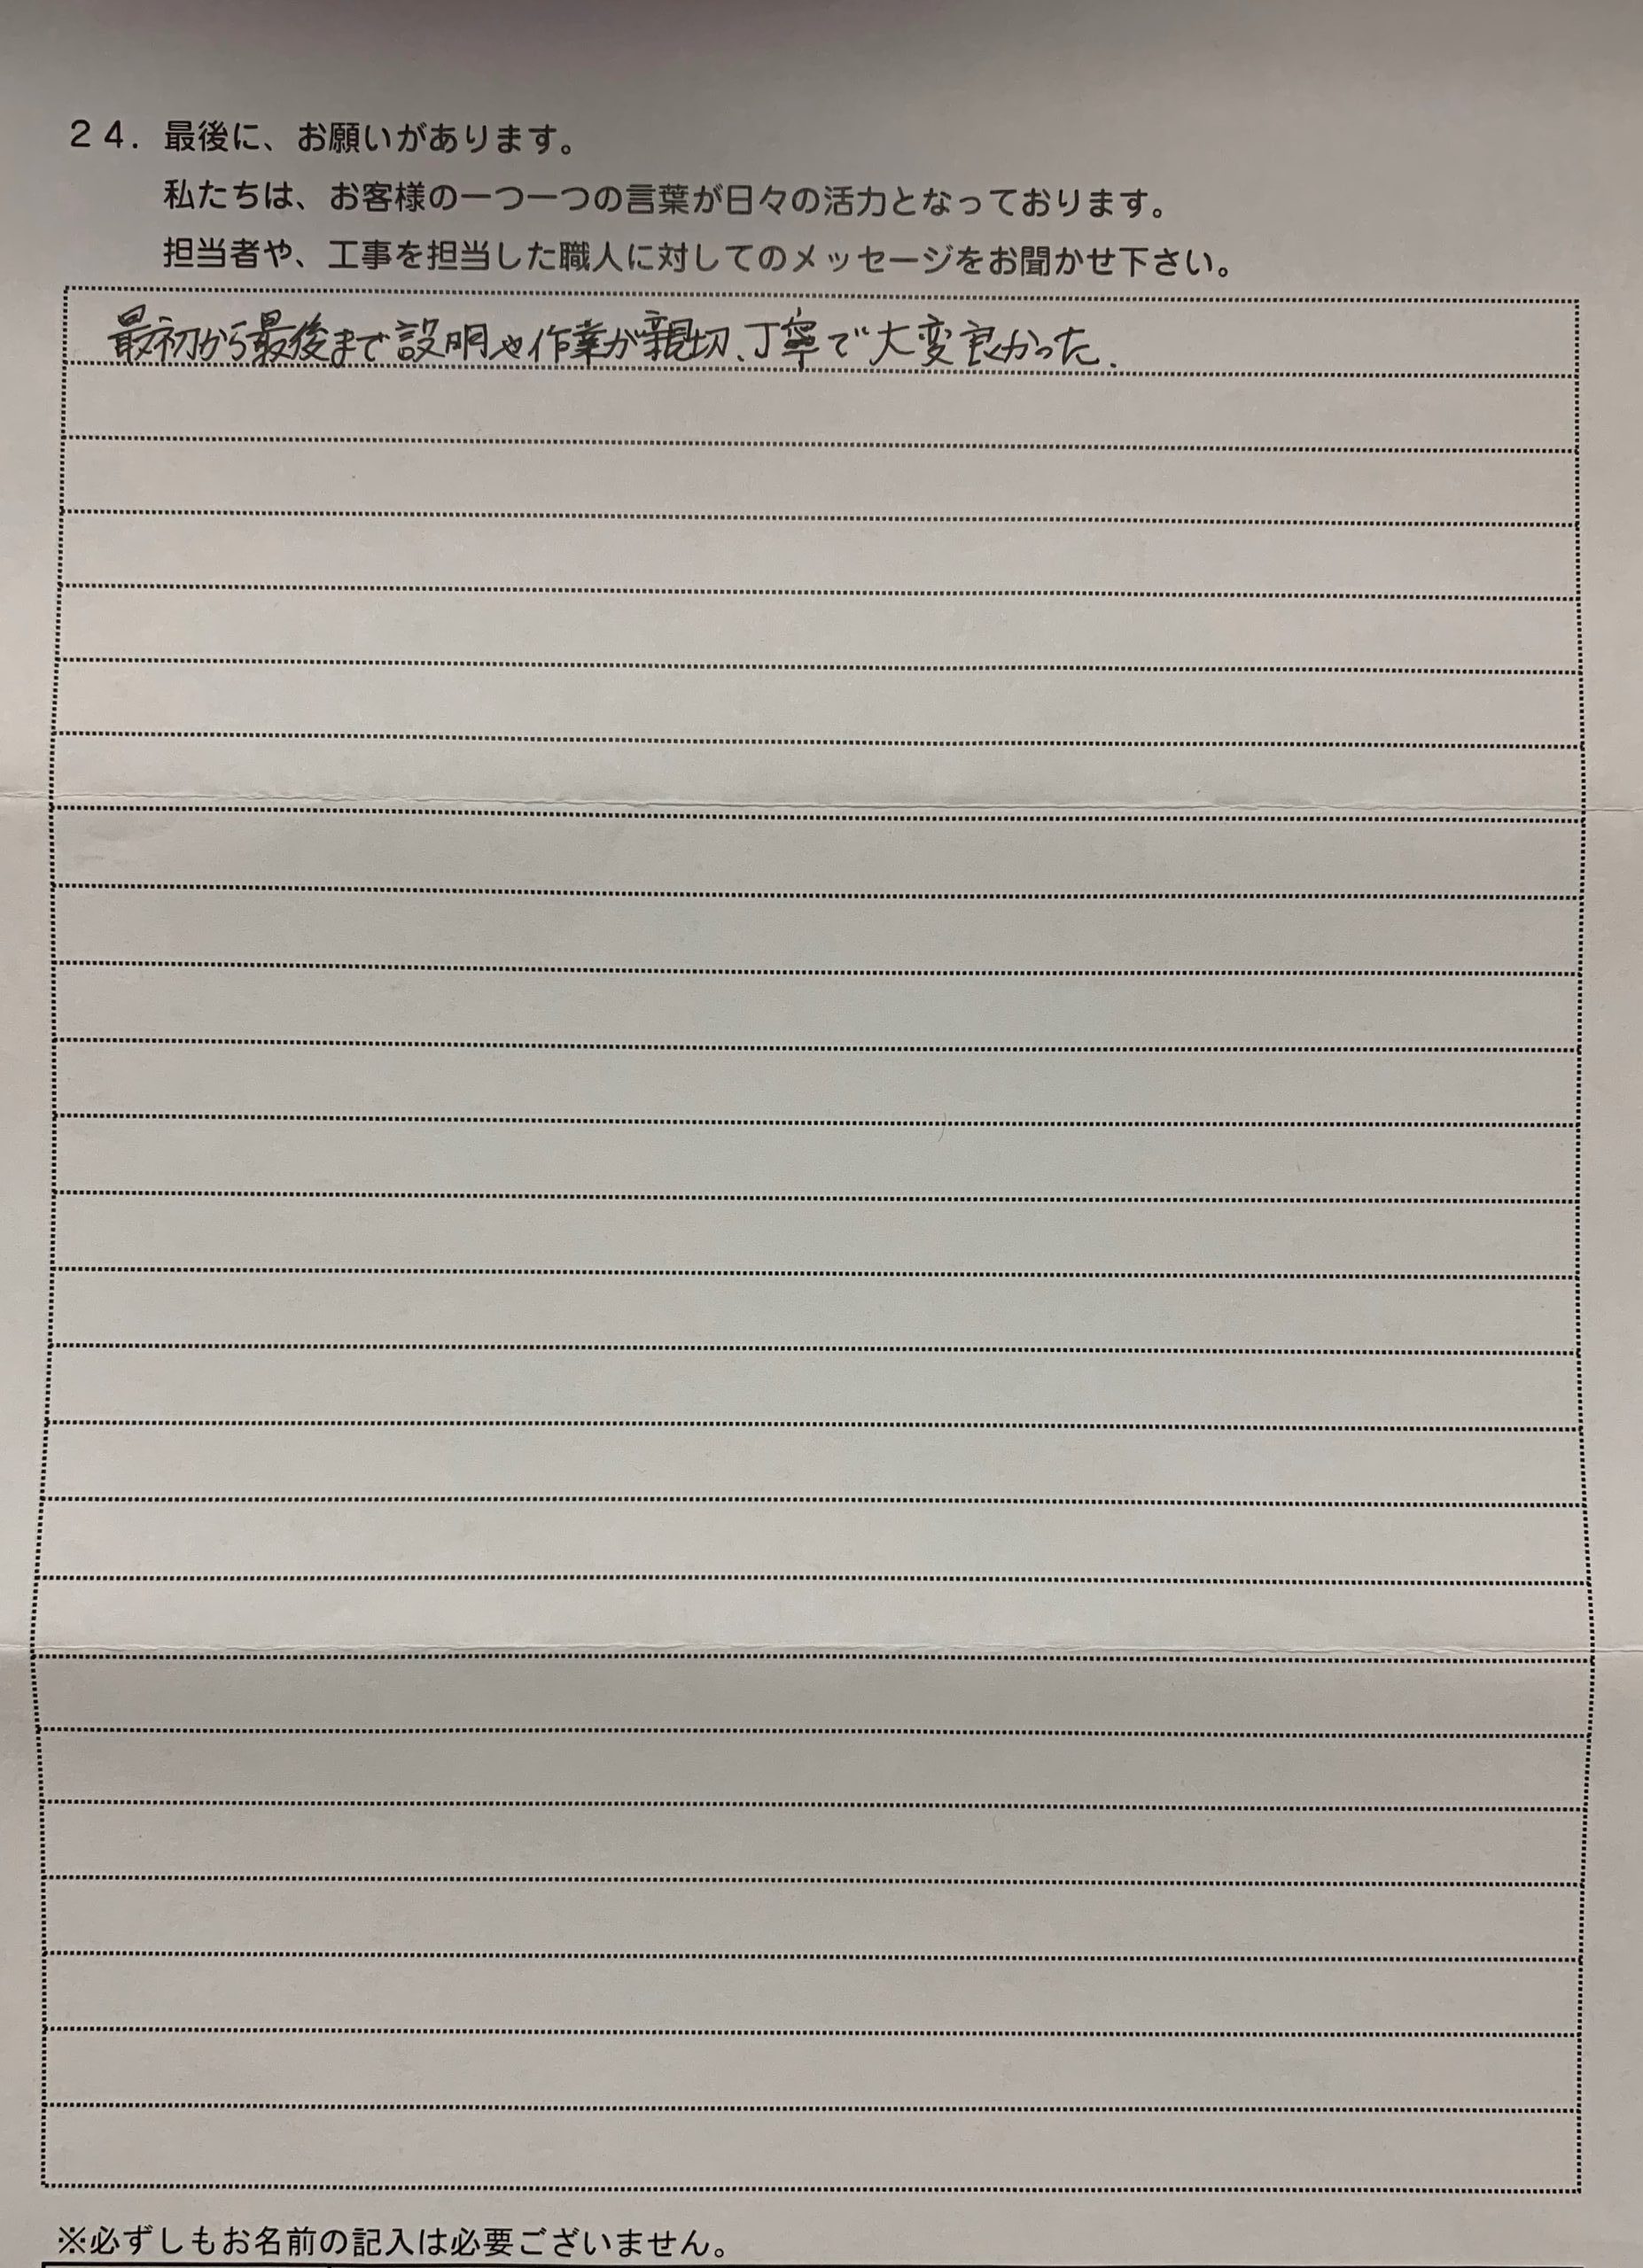 ２４．最後に、お願いがあります。
私たちは、お客様の一つ一つの言葉が日々の活力となっております。
担当者や、工事を担当した職人に対してのメッセージをお聞かせ下さい。
最初から最後まで設明や作業が親切、丁寧で大変良かった.
※必ずしもお名前の記入は必要ございません。